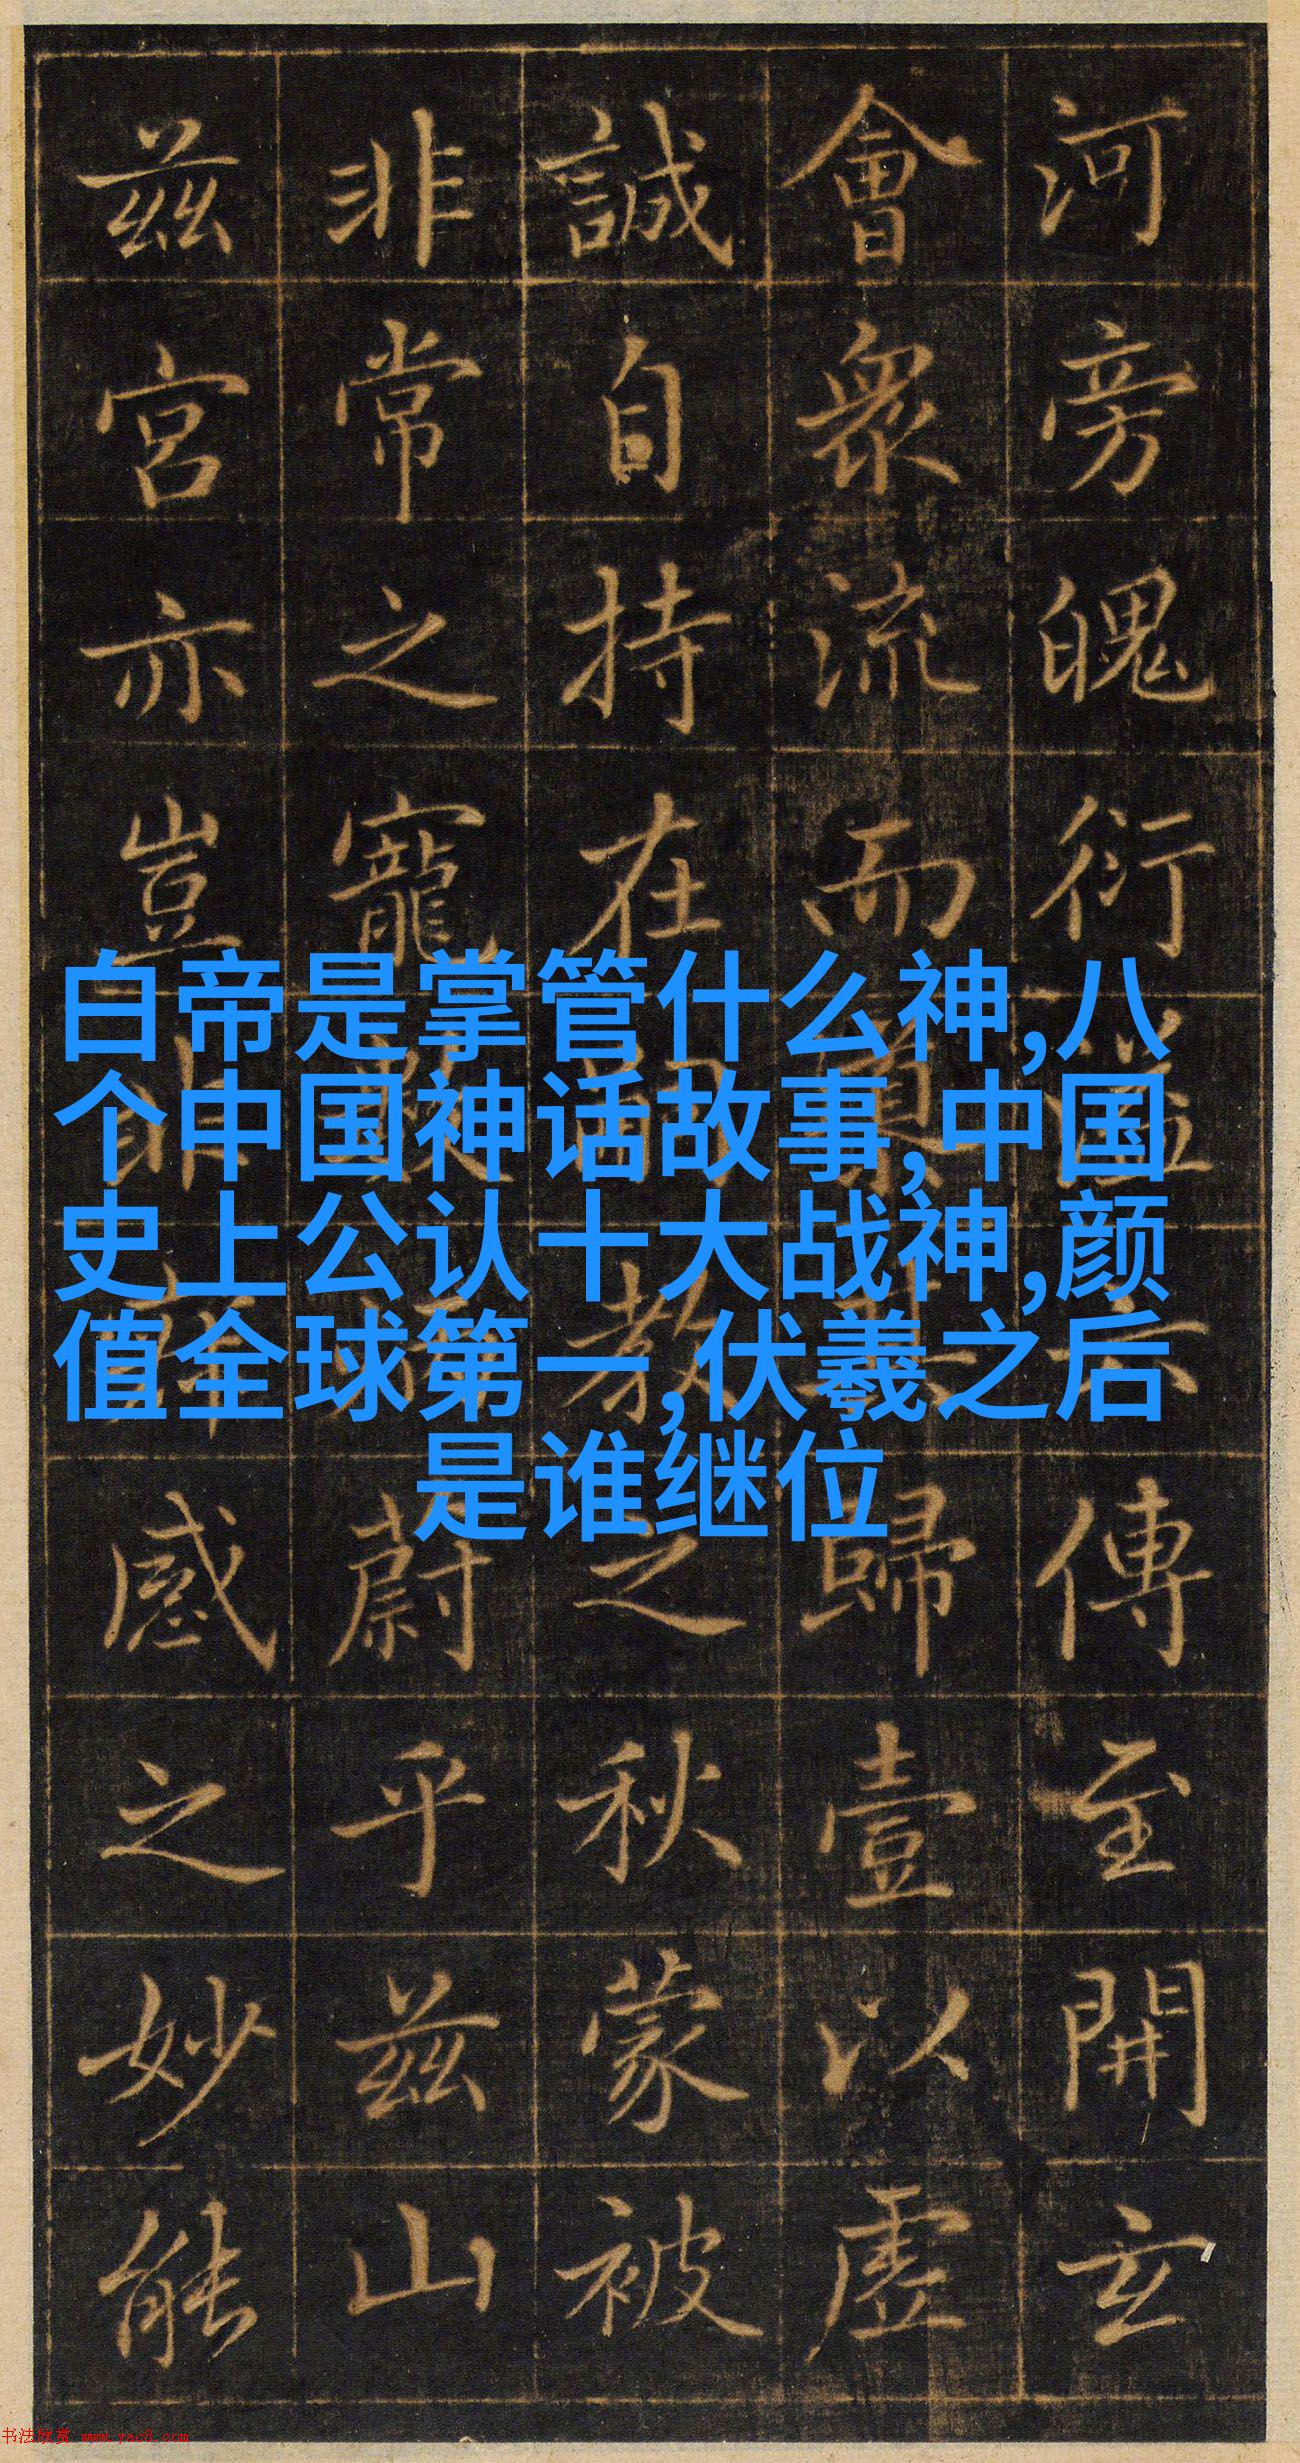 河旁魄衍傳至開玄
會衆流而歸壹以虛
誠自持在教之秋蒙被
非常之寵蔚乎兹山
兹宮亦豈感之妙能
白帝是掌管什么神,八
个中国神话故事,中国
史上公认十大战神,颜
值全球第一,伏羲之后
是谁继位
书法欣赏 www.yac8.com